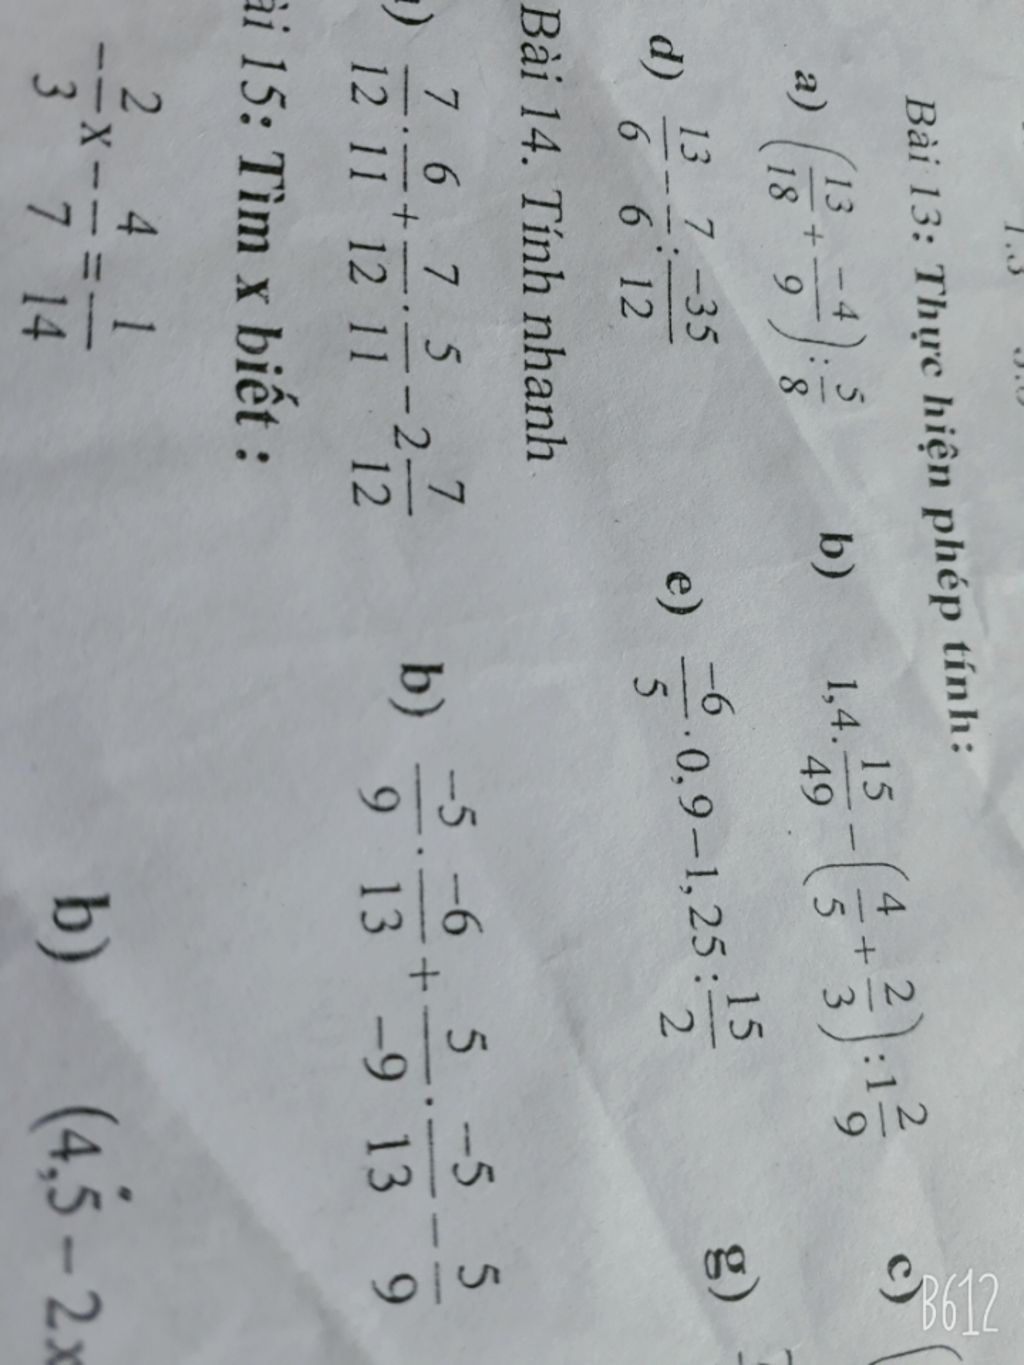 Bài 13: Thực hiện phép tính:
a) (13/18 + -4/9) : 5/8 b) 1,4 . 15/49 - (4/5 + 2/3) : 1 2/9 c)
d) 13/6 - 7/6 : -35/12 e) -6/5 . 0,9 - 1,25 : 15/2 g)
Bài 14. Tính nhanh
) 7/12 . 6/11 + 7/12 . 5/11 - 2 7/12 b) -5/9 . -6/13 + 5/-9 . -5/13 - 5/9
ài 15: Tìm x biết :
-2/3 x - 4/7 = 1/14 b) (4,5 - 2x
B612